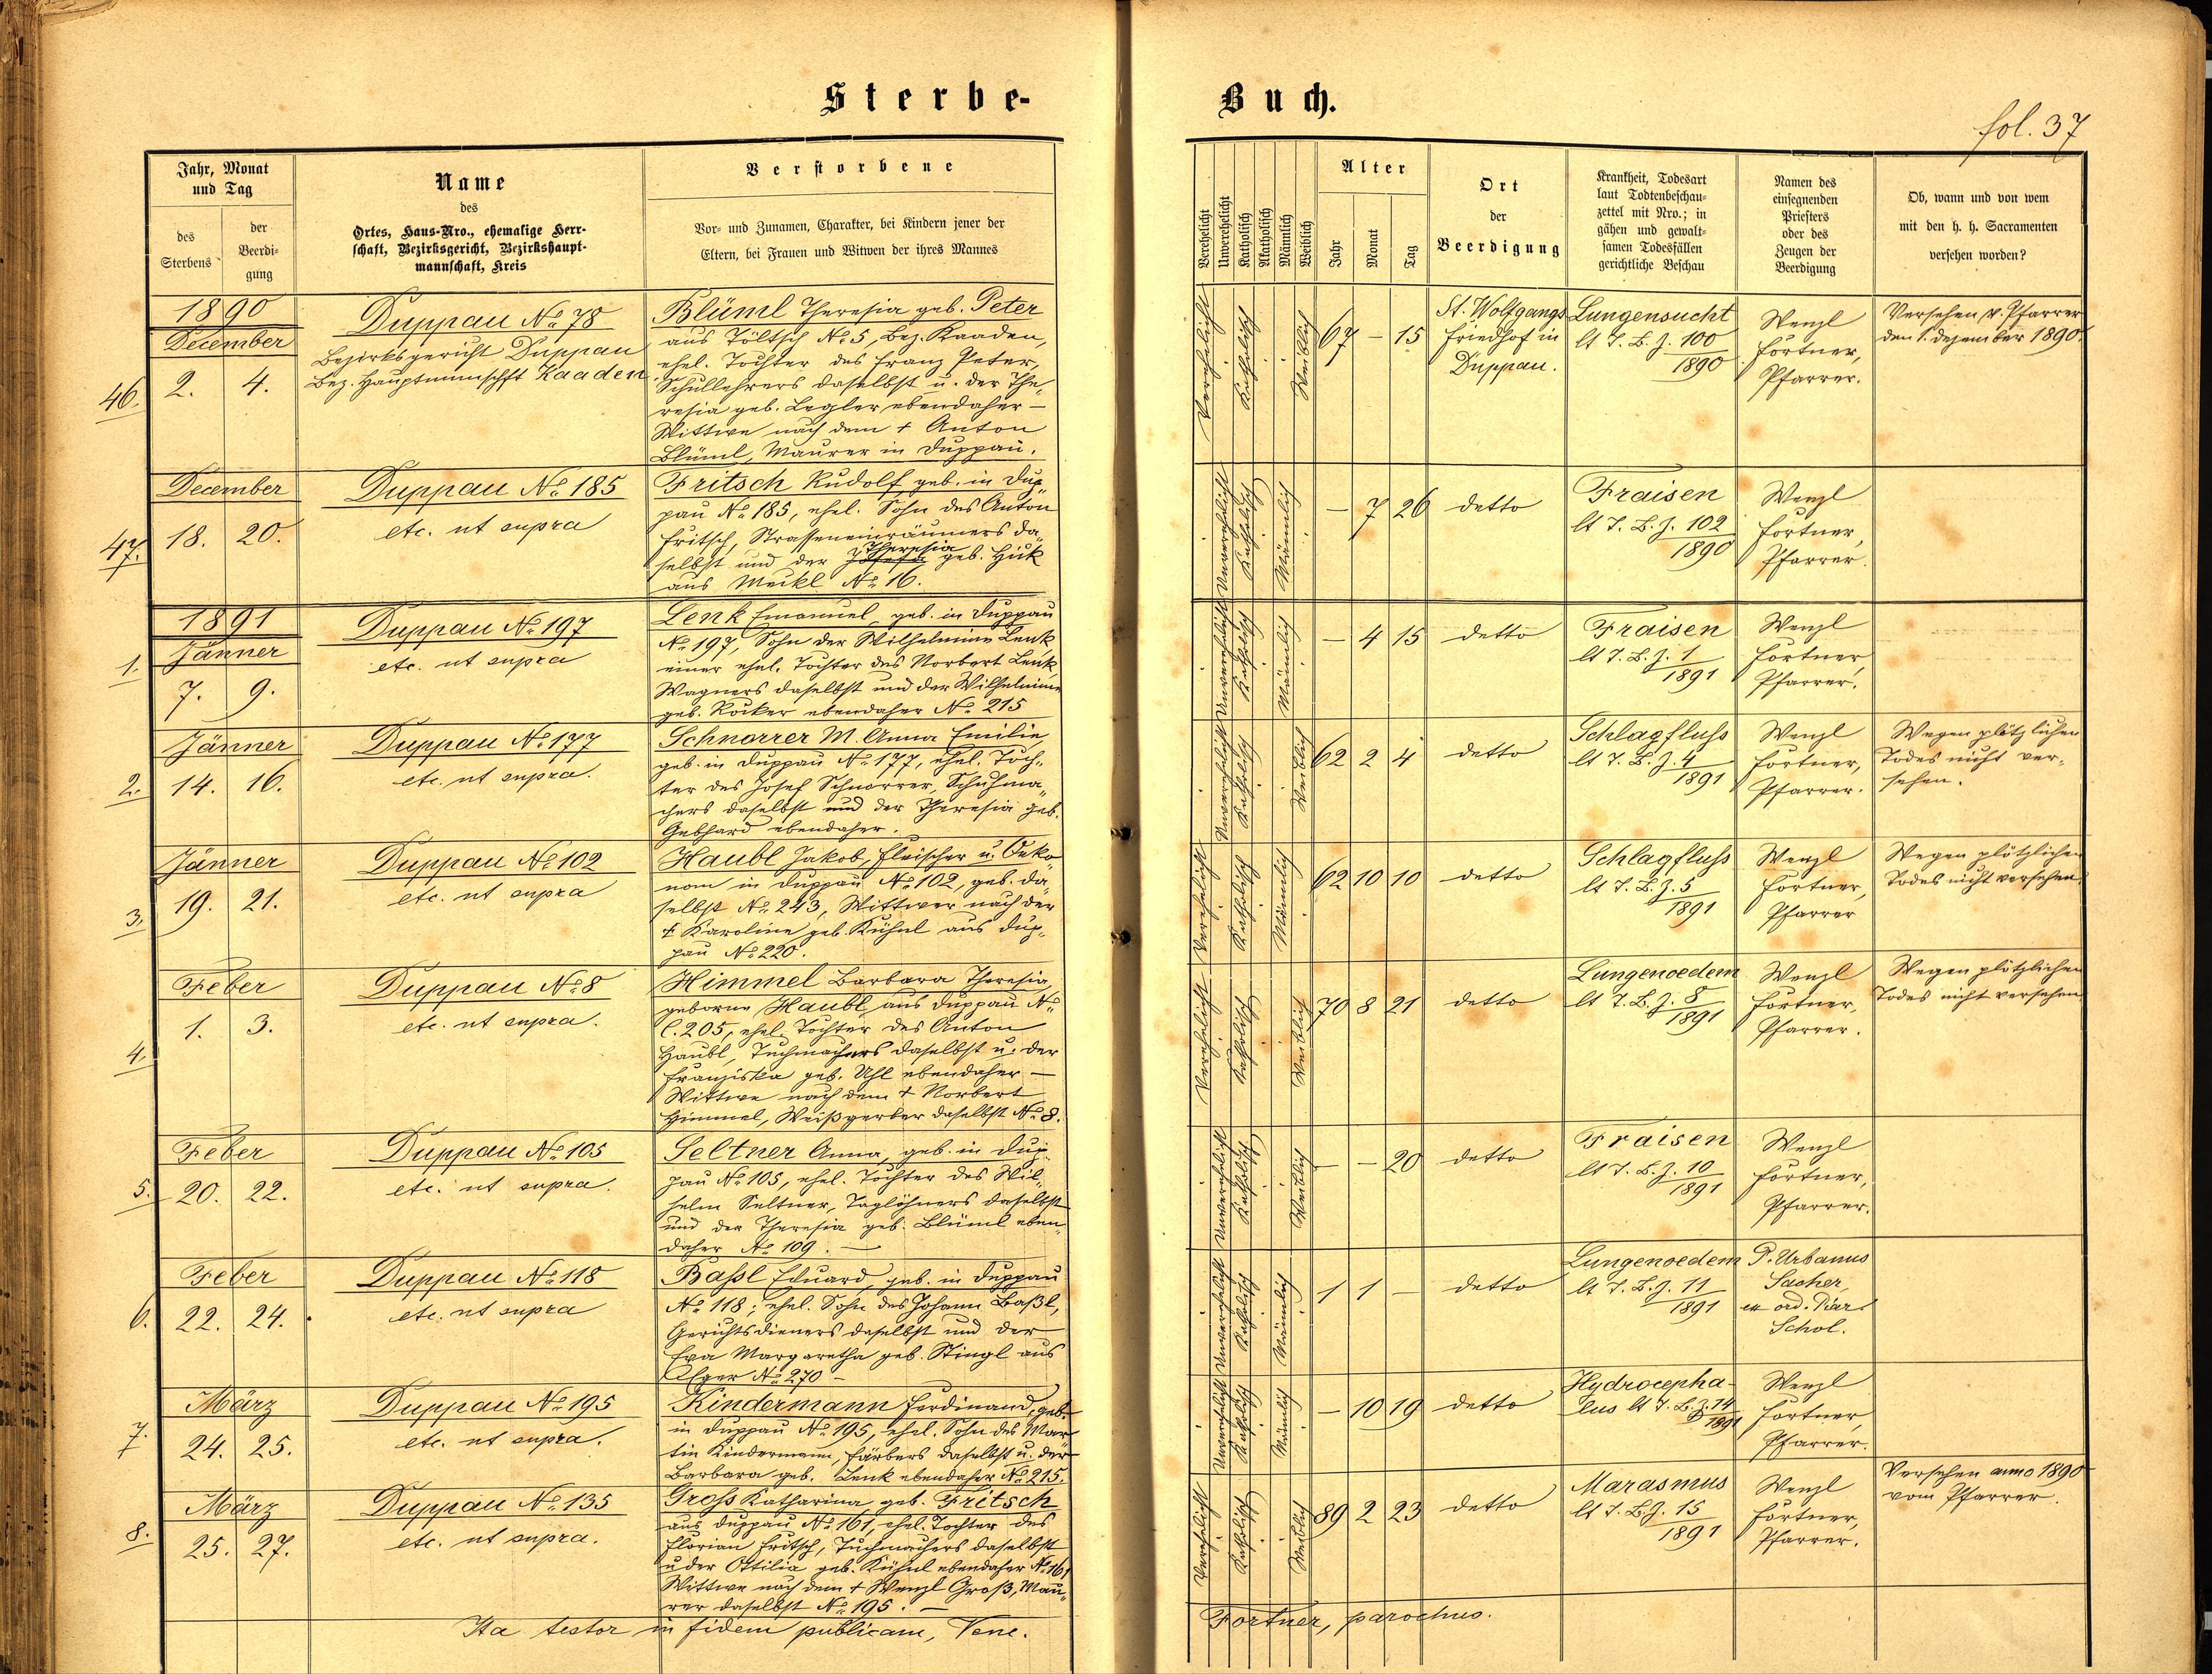 Sterbe-
Buch.
fol. 37
Jahr, Monat
und Tag
des
Sterbens
der
Beerdi-
gung
Name
des
Ortes, Haus-Nro., ehemalige Herr-
schaft, Bezirksgericht, Bezirkshaupt-
mannschaft, Kreis
Verstorbene
Vor- und Zunamen, Charakter, bei Kindern jener der
Eltern, bei Frauen und Witwen der ihres Mannes
Verehelicht
Unverehelicht
Katholisch
Akatholisch
Männlich
Weiblich
Alter
Jahr
Monat
Tag
Ort
der
Beerdigung
Krankheit, Todesart
laut Todtenbeschau-
zettel mit Nro.; in
gähen und gewalt-
samen Todesfällen
gerichtliche Beschau
Namen des
einsegnenden
Priesters
oder des
Zeugen der
Beerdigung
Ob, wann und von wem
mit den h. h. Sacramenten
versehen worden?
46.
1890
December
2. 4.
Duppau No. 78
Bezirksgericht Duppau
Bez. Hauptmannschft Kaaden
Blüml Theresia geb. Peter
aus Töltsch No. 5, Bez. Kaaden,
ehel. Tochter des Franz Peter,
Schullehrers daselbst u. der The-
resia geb. Legler ebendaher –
Wittwe nach dem † Anton
Blüml, Maurer in Duppau.
Verehelicht
Katholisch
Weiblich
67 – 15
St. Wolfgangs
Friedhof in
Duppau.
Lungensucht
lt T. B. Z. 100
1890
Wenzl
Förtner,
Pfarrer.
Versehen v. Pfarrer
den 1. Dezember 1890.
47.
December
18. 20.
Duppau No. 185
etc. ut supra
Fritsch Rudolf geb. in Dup-
pau No. 185, ehel. Sohn des Anton
Fritsch, Strasseneinräumers da-
Theresia
selbst und der Josefa geb. Hük
aus Meckl No. 16.
Unverehelicht
Katholisch
Männlich
– 7 26
detto
Fraisen
lt T. B. Z. 102
1890
Wenzl
Förtner,
Pfarrer.
1.
1891
Jänner
7. 9.
Duppau No. 197
etc. ut supra
Lenk Emanuel, geb. in Duppau
No. 197, Sohn der Wilhelmine Lenk
einer ehel. Tochter des Norbert Lenk
Wagners daselbst und der Wilhelmine
geb. Röcker ebendaher No. 215
Unverehelicht
Katholisch
Männlich
– 4 15
detto
Fraisen
lt T. B. Z. 1
1891
Wenzl
Förtner,
Pfarrer.
2.
Jänner
14. 16.
Duppau No. 177
etc. ut supra.
Schnorrer M. Anna Emilie
geb. in Duppau No. 177, ehel. Toch-
ter des Josef Schnorrer, Schuhma-
chers daselbst und der Theresia geb.
Gebhard ebendaher.
Unverehelicht
Katholisch
Weiblich
62 2 4
detto
Schlagfluss
lt T. B. Z. 4
1891
Wenzl
Förtner,
Pfarrer.
Wegen plötzlichen
Todes nicht ver-
sehen.
3.
Jänner
19. 21.
Duppau No. 102
etc. ut supra
Haubl Jakob, Fleischer u. Oeko-
nom in Duppau No. 102, geb. da-
selbst No. 243, Wittwer nach der
† Karoline geb. Kühnl aus Dup-
pau No. 220.
Verehelicht
Katholisch
Männlich
62 10 10
detto
Schlagfluss
lt T. B. Z. 5
1891
Wenzl
Förtner,
Pfarrer
Wegen plötzlichen
Todes nicht versehen.
4.
Feber
1. 3.
Duppau No. 8
etc. ut supra.
Himmel Barbara Theresia
geborne Haubl, aus Duppau No.
C. 205, ehel. Tochter des Anton
Haubl, Tuchmachers daselbst u. der
Franziska geb. Uhl ebendaher –
Wittwe nach dem † Norbert
Himmel, Weißgerber daselbst No. 8.
Verehelicht
Katholisch
Weiblich
70 8 21
detto
Lungenoedem
lt T. B. Z. 8
1891
Wenzl
Förtner,
Pfarrer.
Wegen plötzlichen
Todes nicht versehen
5.
Feber
20. 22.
Duppau No. 105
etc. ut supra.
Seltner Anna, geb. in Dup-
pau No. 105, ehel. Tochter des Wil-
helm Seltner, Taglöhners daselbst
und der Theresia geb. Blüml eben-
daher No. 109. –
Unverehelicht
Katholisch
Weiblich
– – 20
detto
Fraisen
lt T. B. Z. 10
1891
Wenzl
Förtner,
Pfarrer.
6.
Feber
22. 24.
Duppau No. 118
etc. ut supra
Bassl Eduard, geb. in Duppau
No. 118; ehel. Sohn des Johann Baßl,
Gerichtsdieners daselbst und der
Eva Margaretha geb. Stingl aus
Eger No. 270 –
Unverehelicht
Katholisch
Männlich
1 1 –
detto
Lungenoedem
lt T. B. Z. 11
1891
P. Urbanus
Sacher,
ex ord. Piar.
Schol.
7.
März
24. 25.
Duppau No. 195
etc. ut supra.
Kindermann Ferdinand, geb.
in Duppau No. 195, ehel. Sohn des Mar-
tin Kindermann, Färbers daselbst u. der
Barbara geb. Lenk ebendaher No. 215.
Unverehelicht
Katholisch
Männlich
– 10 19
detto
Hydrocepha-
lus lt T. B. Z. 14
1891
Wenzl
Förtner,
Pfarrer.
8.
März
25. 27.
Duppau No. 135
etc. ut supra.
Gross Katharina geb. Fritsch
aus Duppau No. 161, ehel. Tochter des
Florian Fritsch, Tuchmachers daselbst
u der Ottilia geb. Kühnl ebendaher No. 161
Wittwe nach dem † Wenzl Groß, Mau-
rer daselbst No. 195. –
Verehelicht
Katholisch
Weiblich
89 2 23
detto
Marasmus
lt T. B. Z. 15
1891
Wenzl
Förtner,
Pfarrer.
Versehen anno 1890
vom Pfarrer.
Ita testor in fidem publicam, Venc. Förtner, parochus.